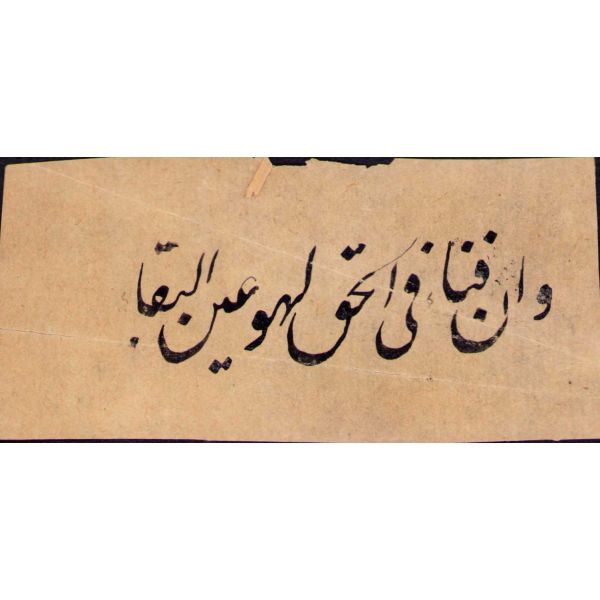 وان فناء فی الحق لهو عین البقا